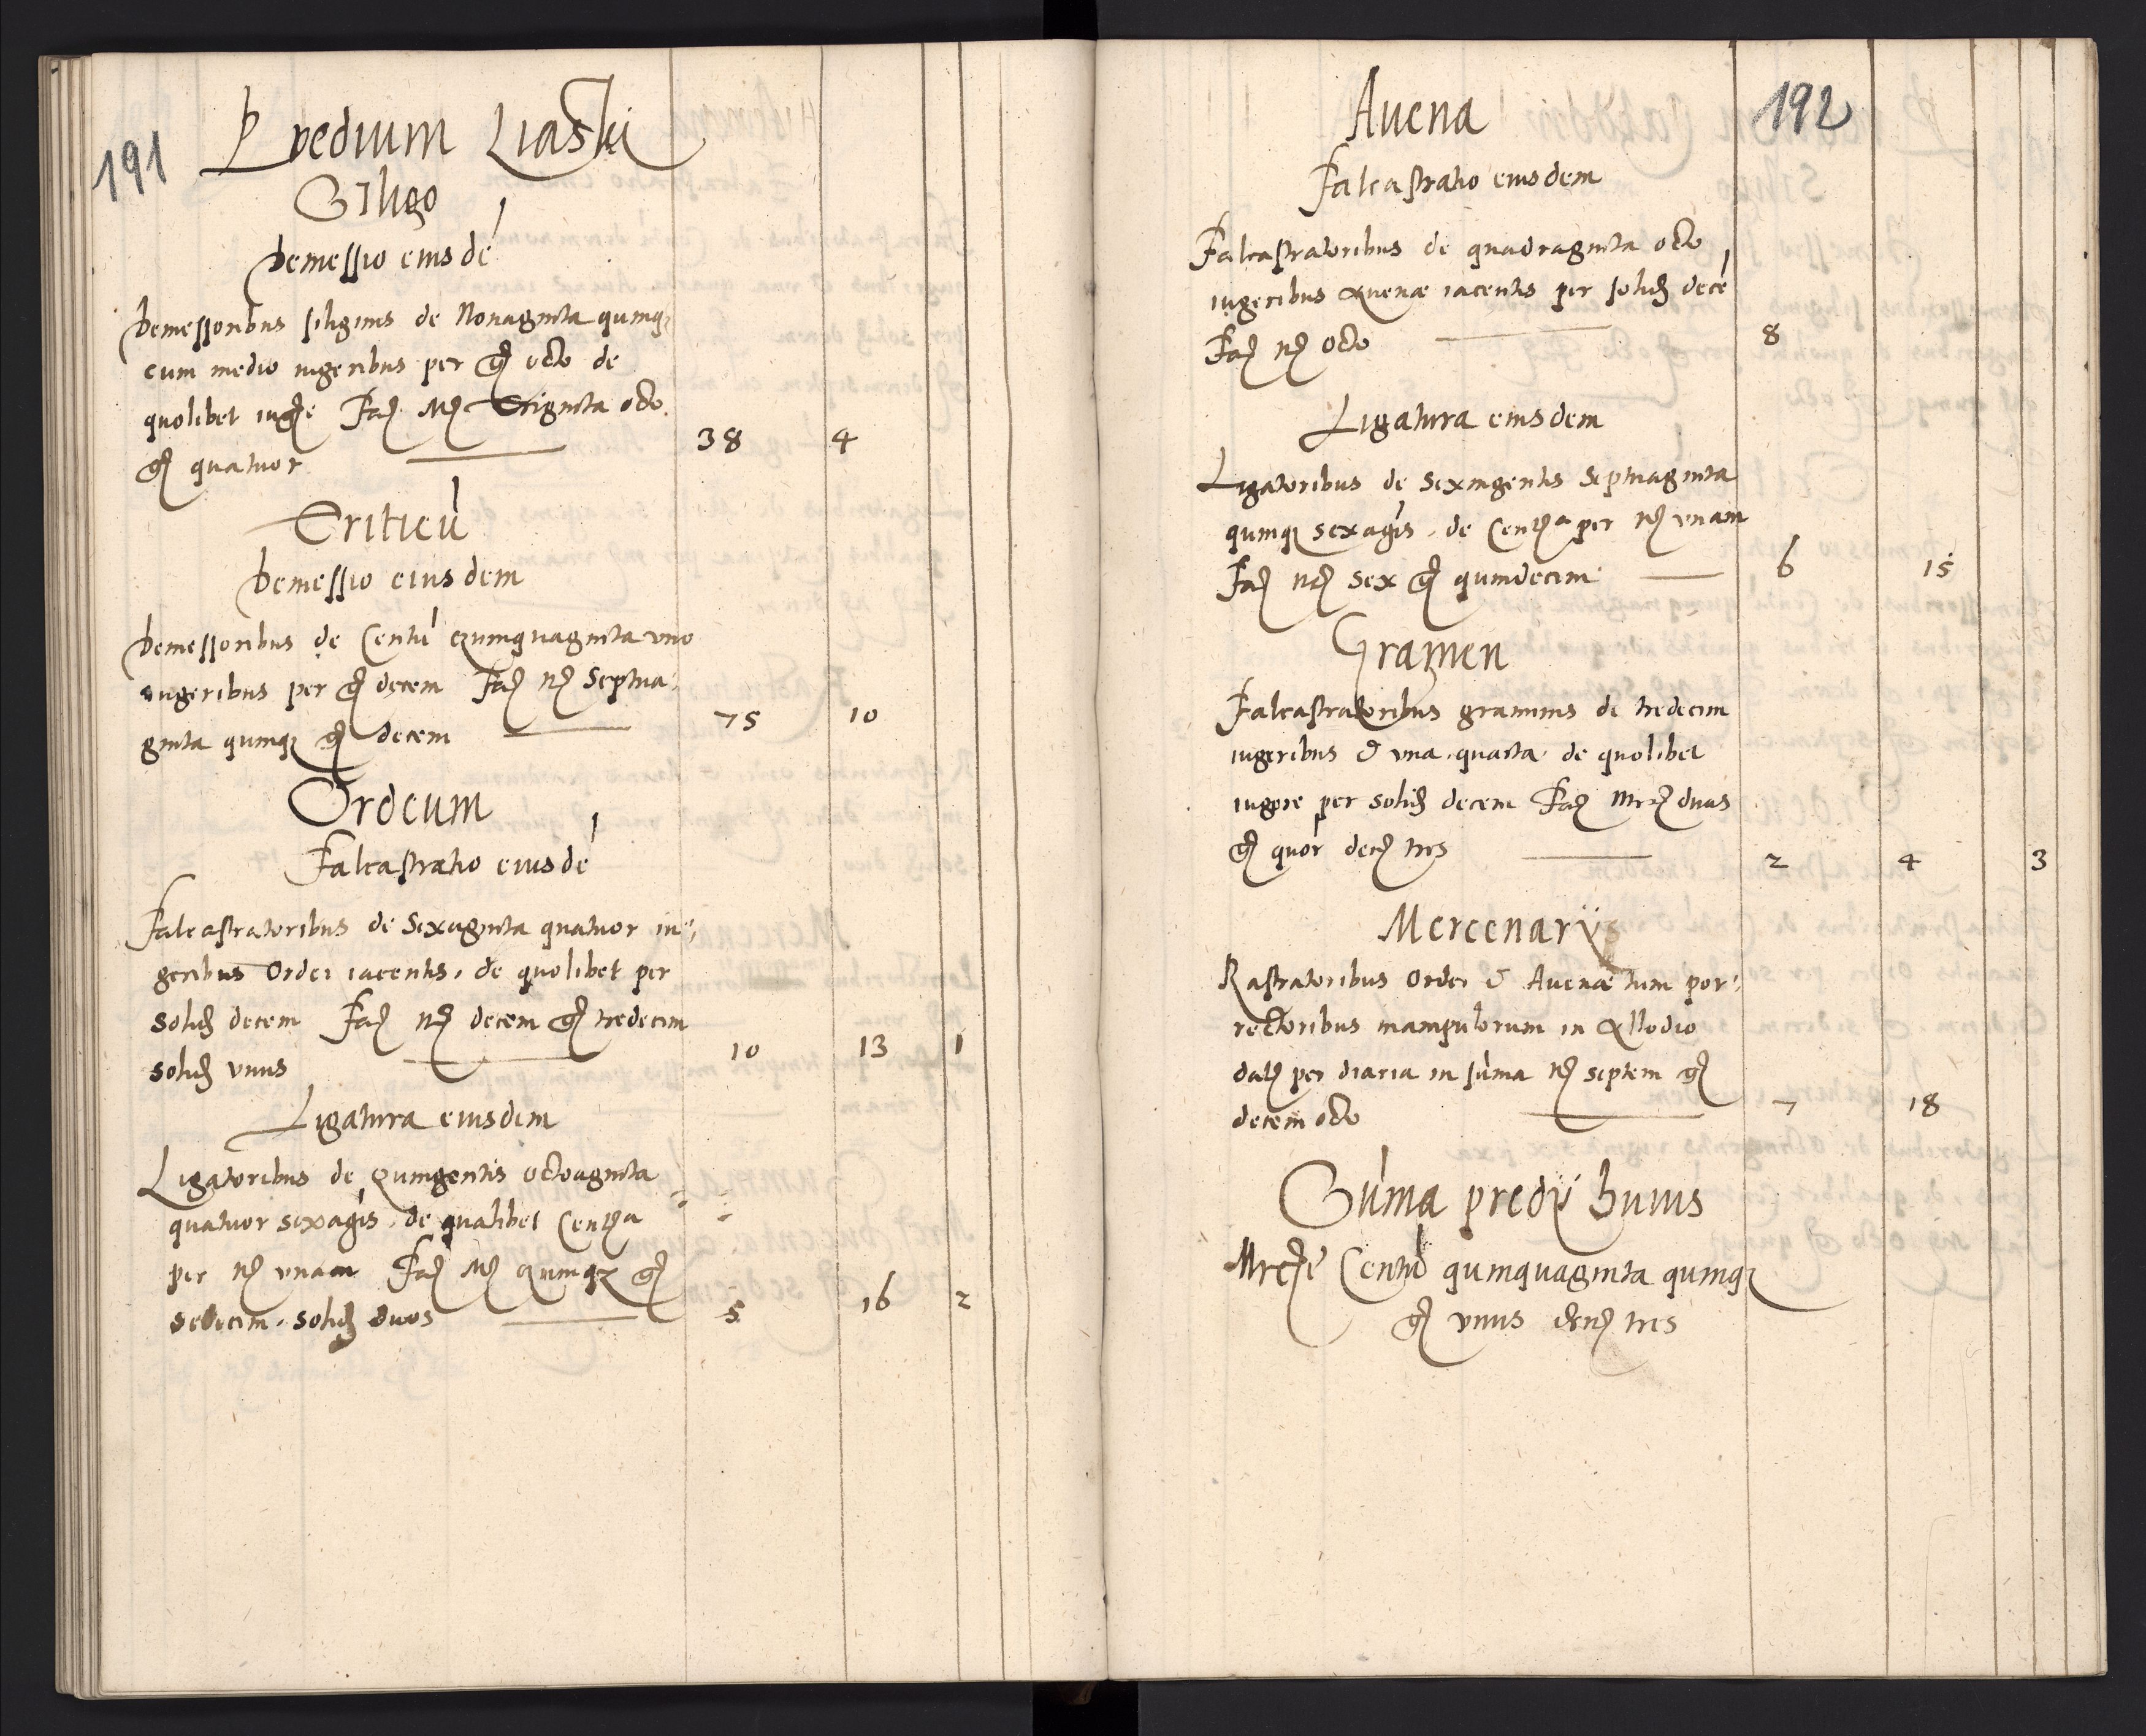 191
Predium Liaski
Siligo
Demessio eiusdē
Demessoribus siliginis de Nonaginta quinq
cum medio iugeribus per g̃ octo de
quolibet iug̃e Fac̃ Mc̃ Triginta octo
g̃ quatuor 38 4
Triticū
Demessio eiusdem
Demessoribus de Centū Quinquaginta uno
iugeribus per g̃ decem Fac̃ Mc̃ Septua:
ginta quinq g̃ decem 75 10
Ordeum
Falcastratio eiusdē
Falcastratoribus de Sexaginta quatuor iu:
geribus Ordei iacentis, de quolibet per
solid̃ decem Fac̃ Mc̃ decem g̃ tredecim
solid̃ unus 10 13 1
Ligatura eiusdem
Ligatoribus de Quingentis octoaginta
quatuor sexagīs, de qualibet Centã
per Mc̃ unam Fac̃ Mc̃ quinq g̃
sedecim, solid̃ duos 5 16 2
192
Avena
Falcastratio eiusdem
Falcastratoribus de quadraginta octo
iugeribus Avenæ iacentis per solid̃ decē
Fac̃ Mc̃ octo 8
Ligatura eiusdem
Ligatoribus de Sexingentis Septuaginta
quinq sexagīs, de Centã per Mc̃ unam
Fac̃ Mc̃ Sex g̃ quindecim 6 15
Gramen
Falcastratoribus graminis de tredecim
iugeribus & una quarta de quolibet
iugere per solid̃ decem Fac̃ Mrc̃ duas
g̃ quor denc̃ tres 2 4 3
Mercenarÿ
Rastratoribus Ordei & Avenæ tum por:
rectoribus manipulorum in Allodio
datc̃ per diaria in sūma Mc̃ septem g̃
decem octo 7 18
Sūma predÿ huius
Mrcē Centū quinquaginta quinq
g̃ unus denc̃ tres